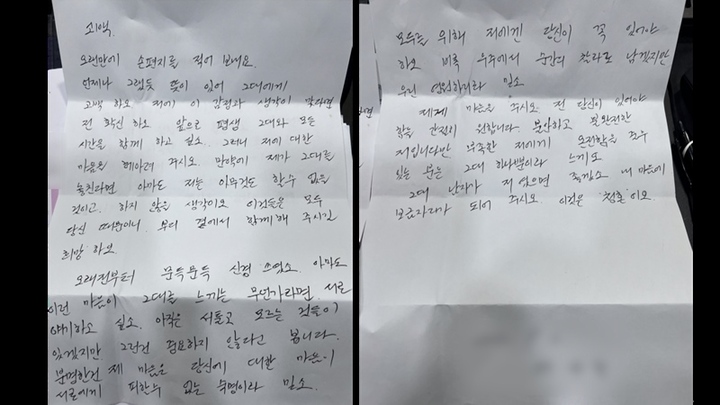 오랜만에 손편지를 적어 보내오.
언제나 그렇듯 뜻이 있어 그대에게
고백 하오 저에 이 감정과 생각이 맞다면
전 확신 하오 앞으로 평생 그대와 모든
시간을 함께 하고 싶소. 그러니 저에 대한
마음을 헤아려 주시오. 만약에 제가 그대를
놓친다면 아마도 저는 아무것도 할수 없을
것이고. 하지 않을 생각이오 이것들은 모두
당신 때문이니. 부디 곁에서 함께해 주시길
희망 하오
오래전부터 문득문득 신경 쓰였소. 아마도
이런 마음이 그대를 느끼는 무언가라면. 서로
얘기하고 싶소. 아직은 서툴고 모르는 것들이
있겠지만 그런건 중요하지 않다고 봅니다.
분명한건 제 마음은 당신에 대한 마음이
서로에게 피할수 없는 숙명이라 믿소.
모두를 위해 저에게 당신이 꼭 있어야
하오 비록 우주에서 순간의 찰라로 남겠지만
우린 영원하리라 믿소
제게 마음을 주시오 전 당신이 있어야
함을 간절히 원합니다. 불안하고 불완전한
저입니다만 부족한 저에게 온전함을 채우
있는 분은 그대 하나뿐이라 느끼오
그대 난자가 저 였으면 좋겠소 내 마음에
보금자리가 되어 주시오 이것은 청혼이오